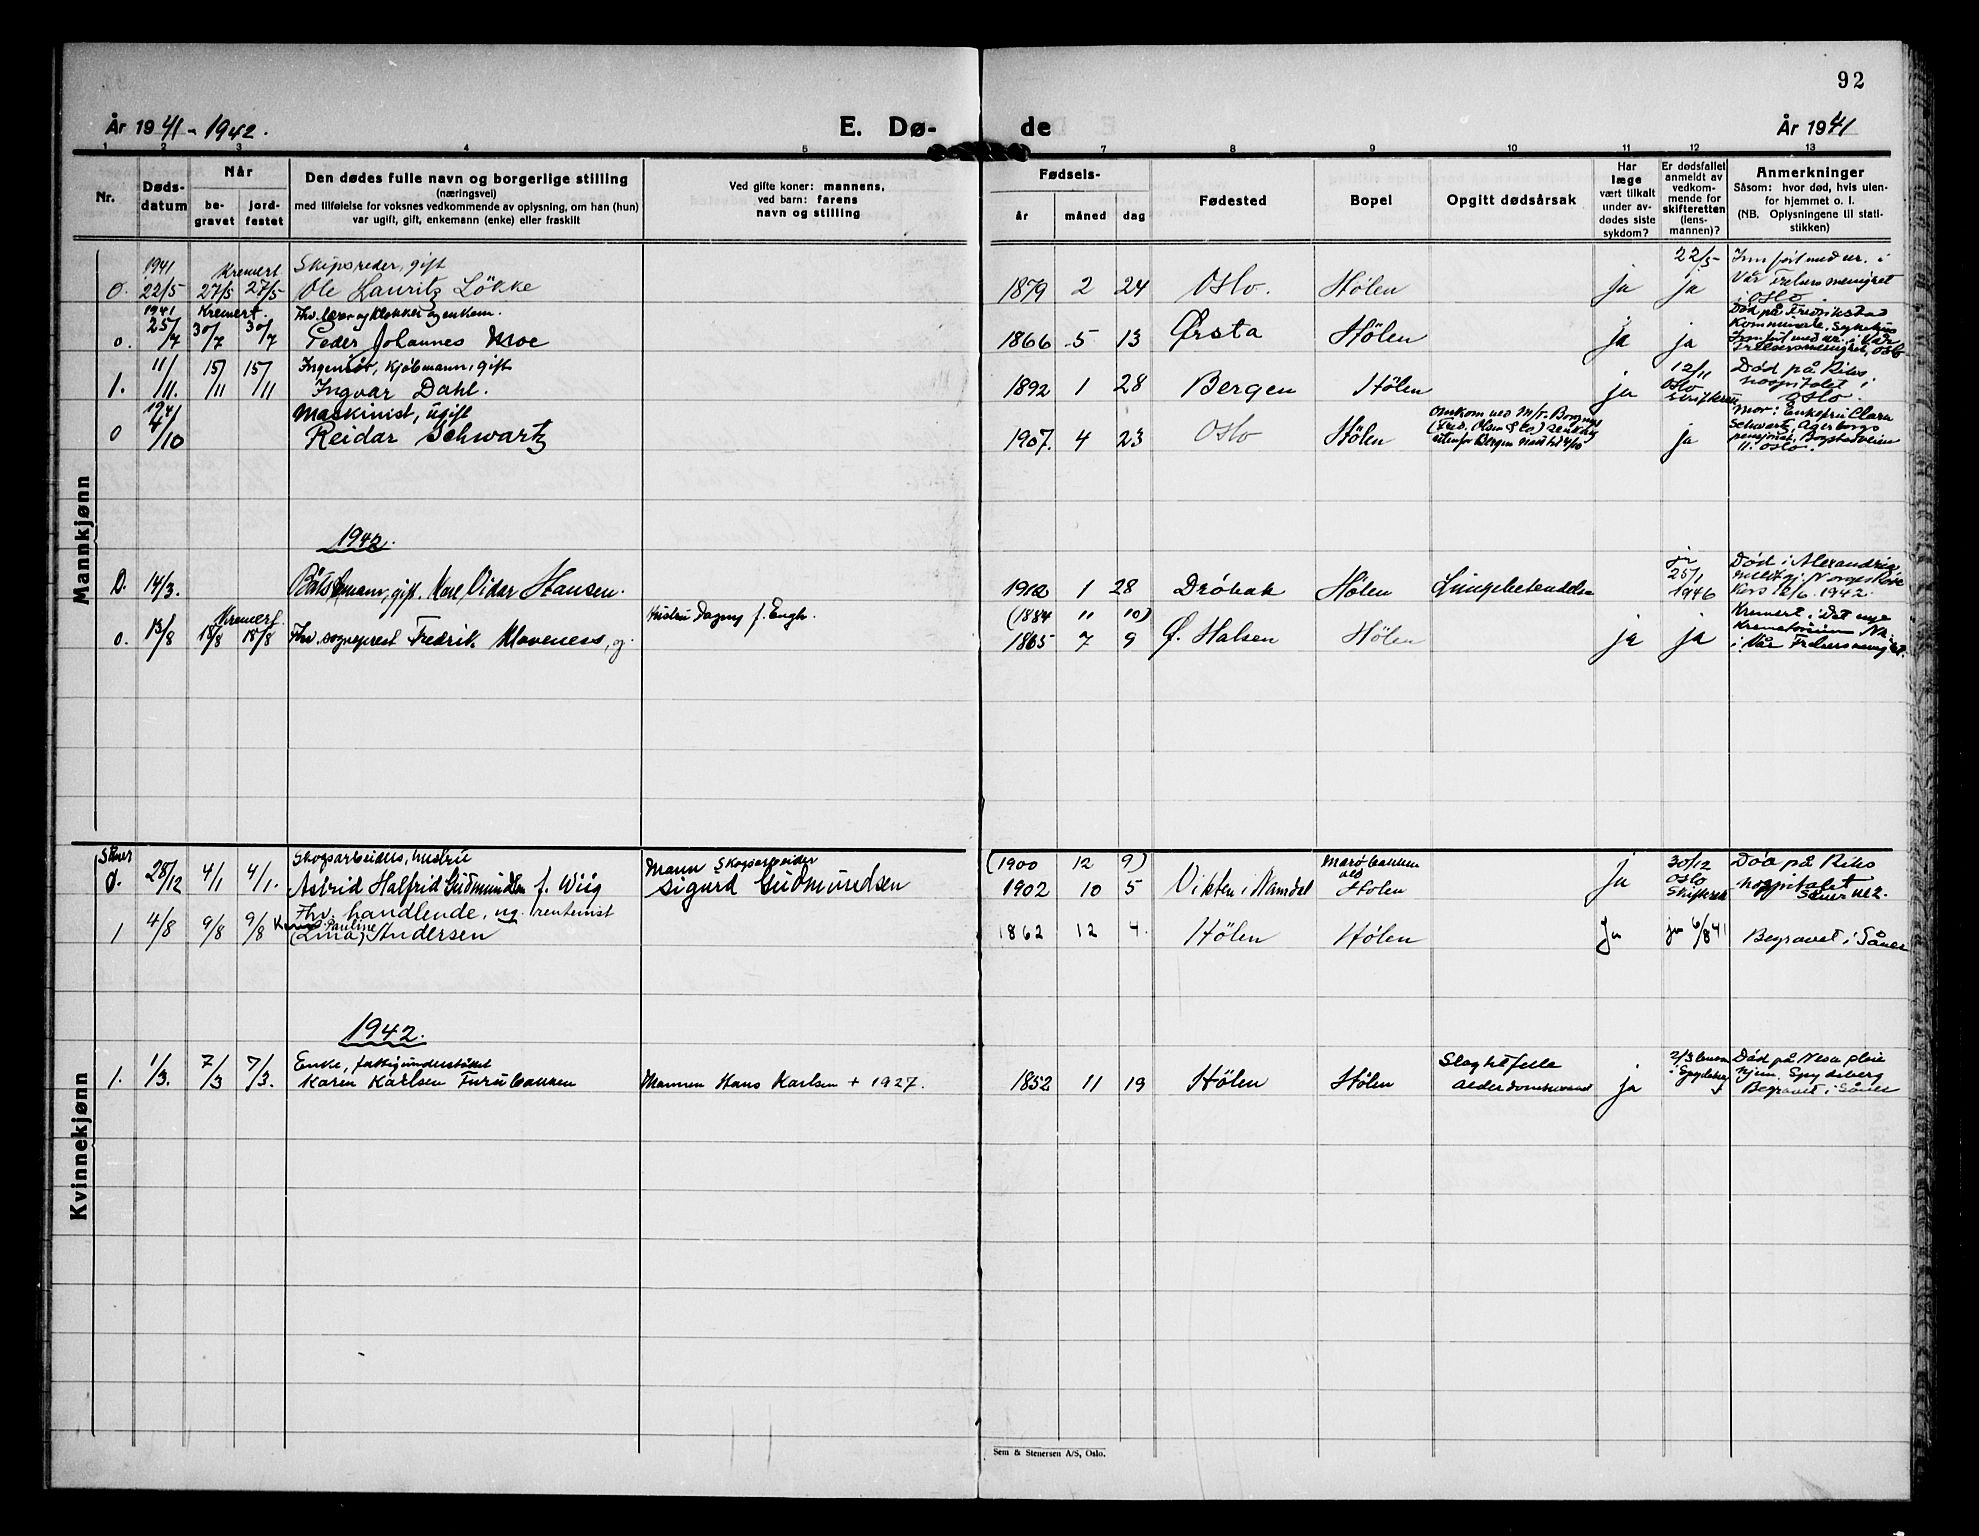 92
År 1941 - 1942.
E. Dø-
de
År 1941
1 2 3 4 5 7 8 9 10 11 12 13
Nr.
Døds-
datum
Når
be-
gravet
jord-
festet
Den dødes fulle navn og borgerlige stilling
(næringsvei)
med tilføielse for voksnes vedkommende av oplysning, om han (hun)
var ugift, gift, enkemann (enke) eller fraskilt
Ved gifte koner: mannens,
ved barn: farens
navn og stilling
Fødsels-
år måned dag
Fødested
Bopel
Opgitt dødsårsak
Har
læge
vært tilkalt
under av-
dødes siste
sykdom?
Er dødsfallet
anmeldt av
vedkom-
mende for
skifteretten
(lens-
mannen)?
Anmerkninger
Såsom: hvor død, hvis uten-
for hjemmet o. l.
(NB. Oplysningene til stati-
stikken)
Mannkjønn
1941 Kremert Skipsreder, gift 22/5 Innført med nr. i
0. 22/5 27/5 27/5 Ole Hauritz Løkke 1879 2 24 Oslo. Hølen ja ja Vår Frelsers menighet
i Oslo.
1941 Kremert. Fhv. lærer og klokker og enkem. Død på Fredrikstad
0. 25/7 30/7 30/7 Peder Johannes Moe 1866 5 13 Ørsta Hølen ja ja Kommunale Sykehus
Innført med nr. i Vår
Frelsersmenighet, Oslo
Ingeniør, Kjøbmann, gift 12/11 Død på Riks
1. 11/11. 15/11 15/11 Ingvar Dahl. 1892 1 28 Bergen Hølen ja Oslo hospitalet i
skifterett Oslo.
1941 Maskinist, ugift Omkom ved M/T. Borgny Mor: Enkefru Clara
0 4/10 Reidar Schwartz 1907. 4 23 Oslo Hølen (Fred. Olsen & Co) senket ja Schwartz, Agerborgs
utenfor Bergen natt til 4/10 pensjonat, Bogstadveien
11. Oslo.
1942.
ja Død i Alexandria
0. 14/3. Båtsmann, gift. Karl Vidar Hansen. 1912 1 28 Drøbak Hølen Lungebetendelse 25/1 meldt gj. Norges Røde
1946 Kors 12/6. 1942.
Kremert Hustru Dagny f. Engh. (1884 11 10) Kremert i Det nye
0. 13/8 18/8 18/8 Fhv. sogneprest Fredrik Klaveness, g. 1865 7 9 Ø. Halsen Hølen ja ja Krematorium Nr.
i Vår Frelsers menighet.
Kvinnekjønn
Såner Skogsarbeiders, hustru Mann Skogsarbeider (1900 12 9) 30/12 Død på Riks
0. 28/12 4/1 4/1. Astrid Halfrid Gudmundsen f. Wiig Sigurd Gudmundsen 1902 10 5 Vikten i Namdal Hølen Ja Oslo hospitalet
Skifterett Såner nr 2.
Fhv. handlende, ug. rentenist
Pauline
1 4/8 9/8 9/8 (Lina) Andersen 1862 12 4. Hølen Hølen Ja ja 6/8 41 Begravet i Såner
1942.
Enke, fattigunderstøttet Slagtilfelle 2/3 Død på Nesa pleie
1. 1/3. 7/3 7/3. Karen Karlsen Furubakken Mannen Hans Karlsen + 1927. 1852 11 19 Hølen Hølen Alderdomssvakhet ja i Spydeberg hjem. Spydeberg
Begravet i Såner
Sem & Stenersen A/S, Oslo.